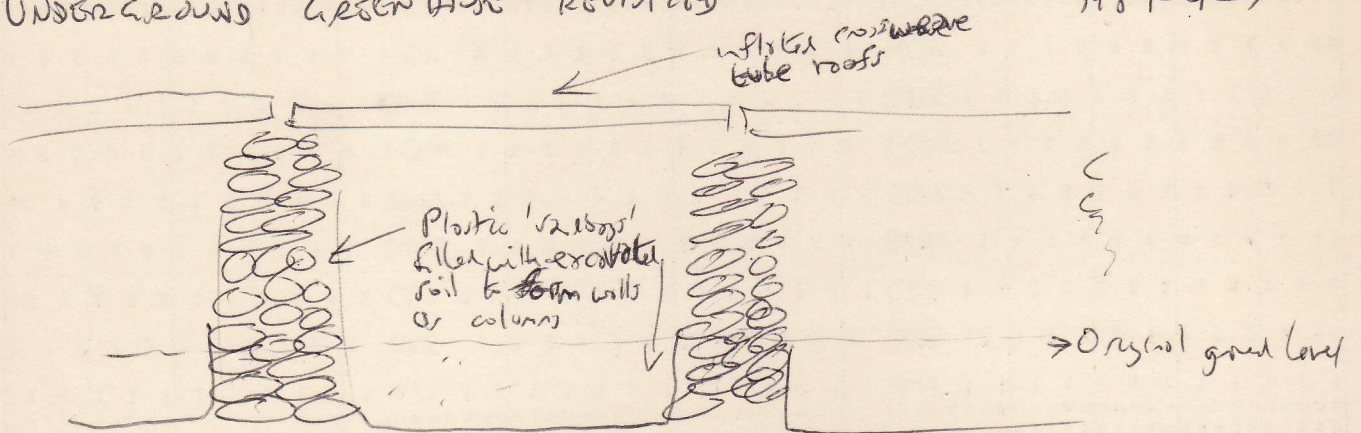 UNDERGROUND GREENHOUSE REVISITED
inflated crossweave
tube roofs
Plastic 'sandbags'
filled with excavated
soil to form walls
or columns
Original ground level